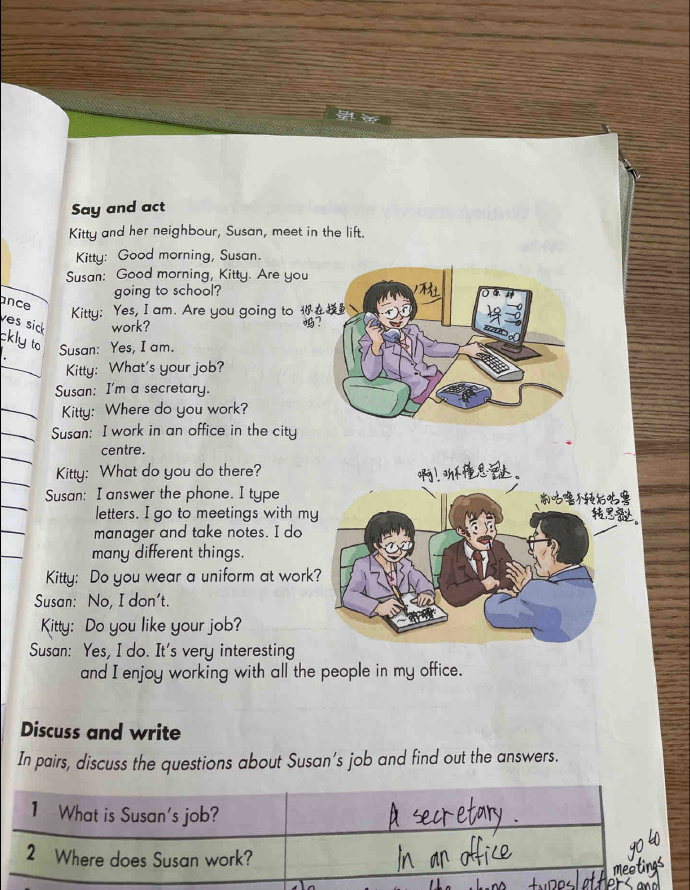 英语
Say and act
Kitty and her neighbour, Susan, meet in the lift.
Kitty: Good morning, Susan.
Susan: Good morning, Kitty. Are you
going to school?
Kitty: Yes, I am. Are you going to
work?
你在摸鱼
吗?
Susan: Yes, I am.
Kitty: What's your job?
Susan: I'm a secretary.
Kitty: Where do you work?
Susan: I work in an office in the city
centre.
Kitty: What do you do there?
Susan: I answer the phone. I type
letters. I go to meetings with my
manager and take notes. I do
many different things.
Kitty: Do you wear a uniform at work?
Susan: No, I don't.
Kitty: Do you like your job?
Susan: Yes, I do. It's very interesting
and I enjoy working with all the people in my office.
啊!听不懂思密达。
Discuss and write
In pairs, discuss the questions about Susan's job and find out the answers.
1 What is Susan's job?
A secretary.
2 Where does Susan work?
In an office
go to
meetings
and
types letters
ance
ves sick
ckly to